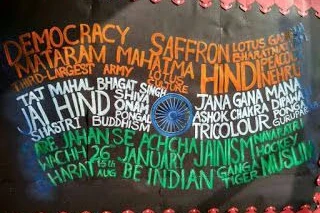 DEMOCRACY SAFFRON LOTUS
MATARAM MAHATMA
THIRD-LARGEST ARMY LOTUS CULTURE HINDI NEHRU
TAJ MAHAL BHAGAT SINGH JANA GANA MANA
JAI HIND SHIVA ONAM ASHOK CHAKRA
SHASTRI BUDDHISM PONGAL TRICOLOUR
SARE JAHAN SE ACHCHA JAINISM
26 JANUARY HOCKEY
15th AUG BE INDIAN GANGA TIGER MUSLIM